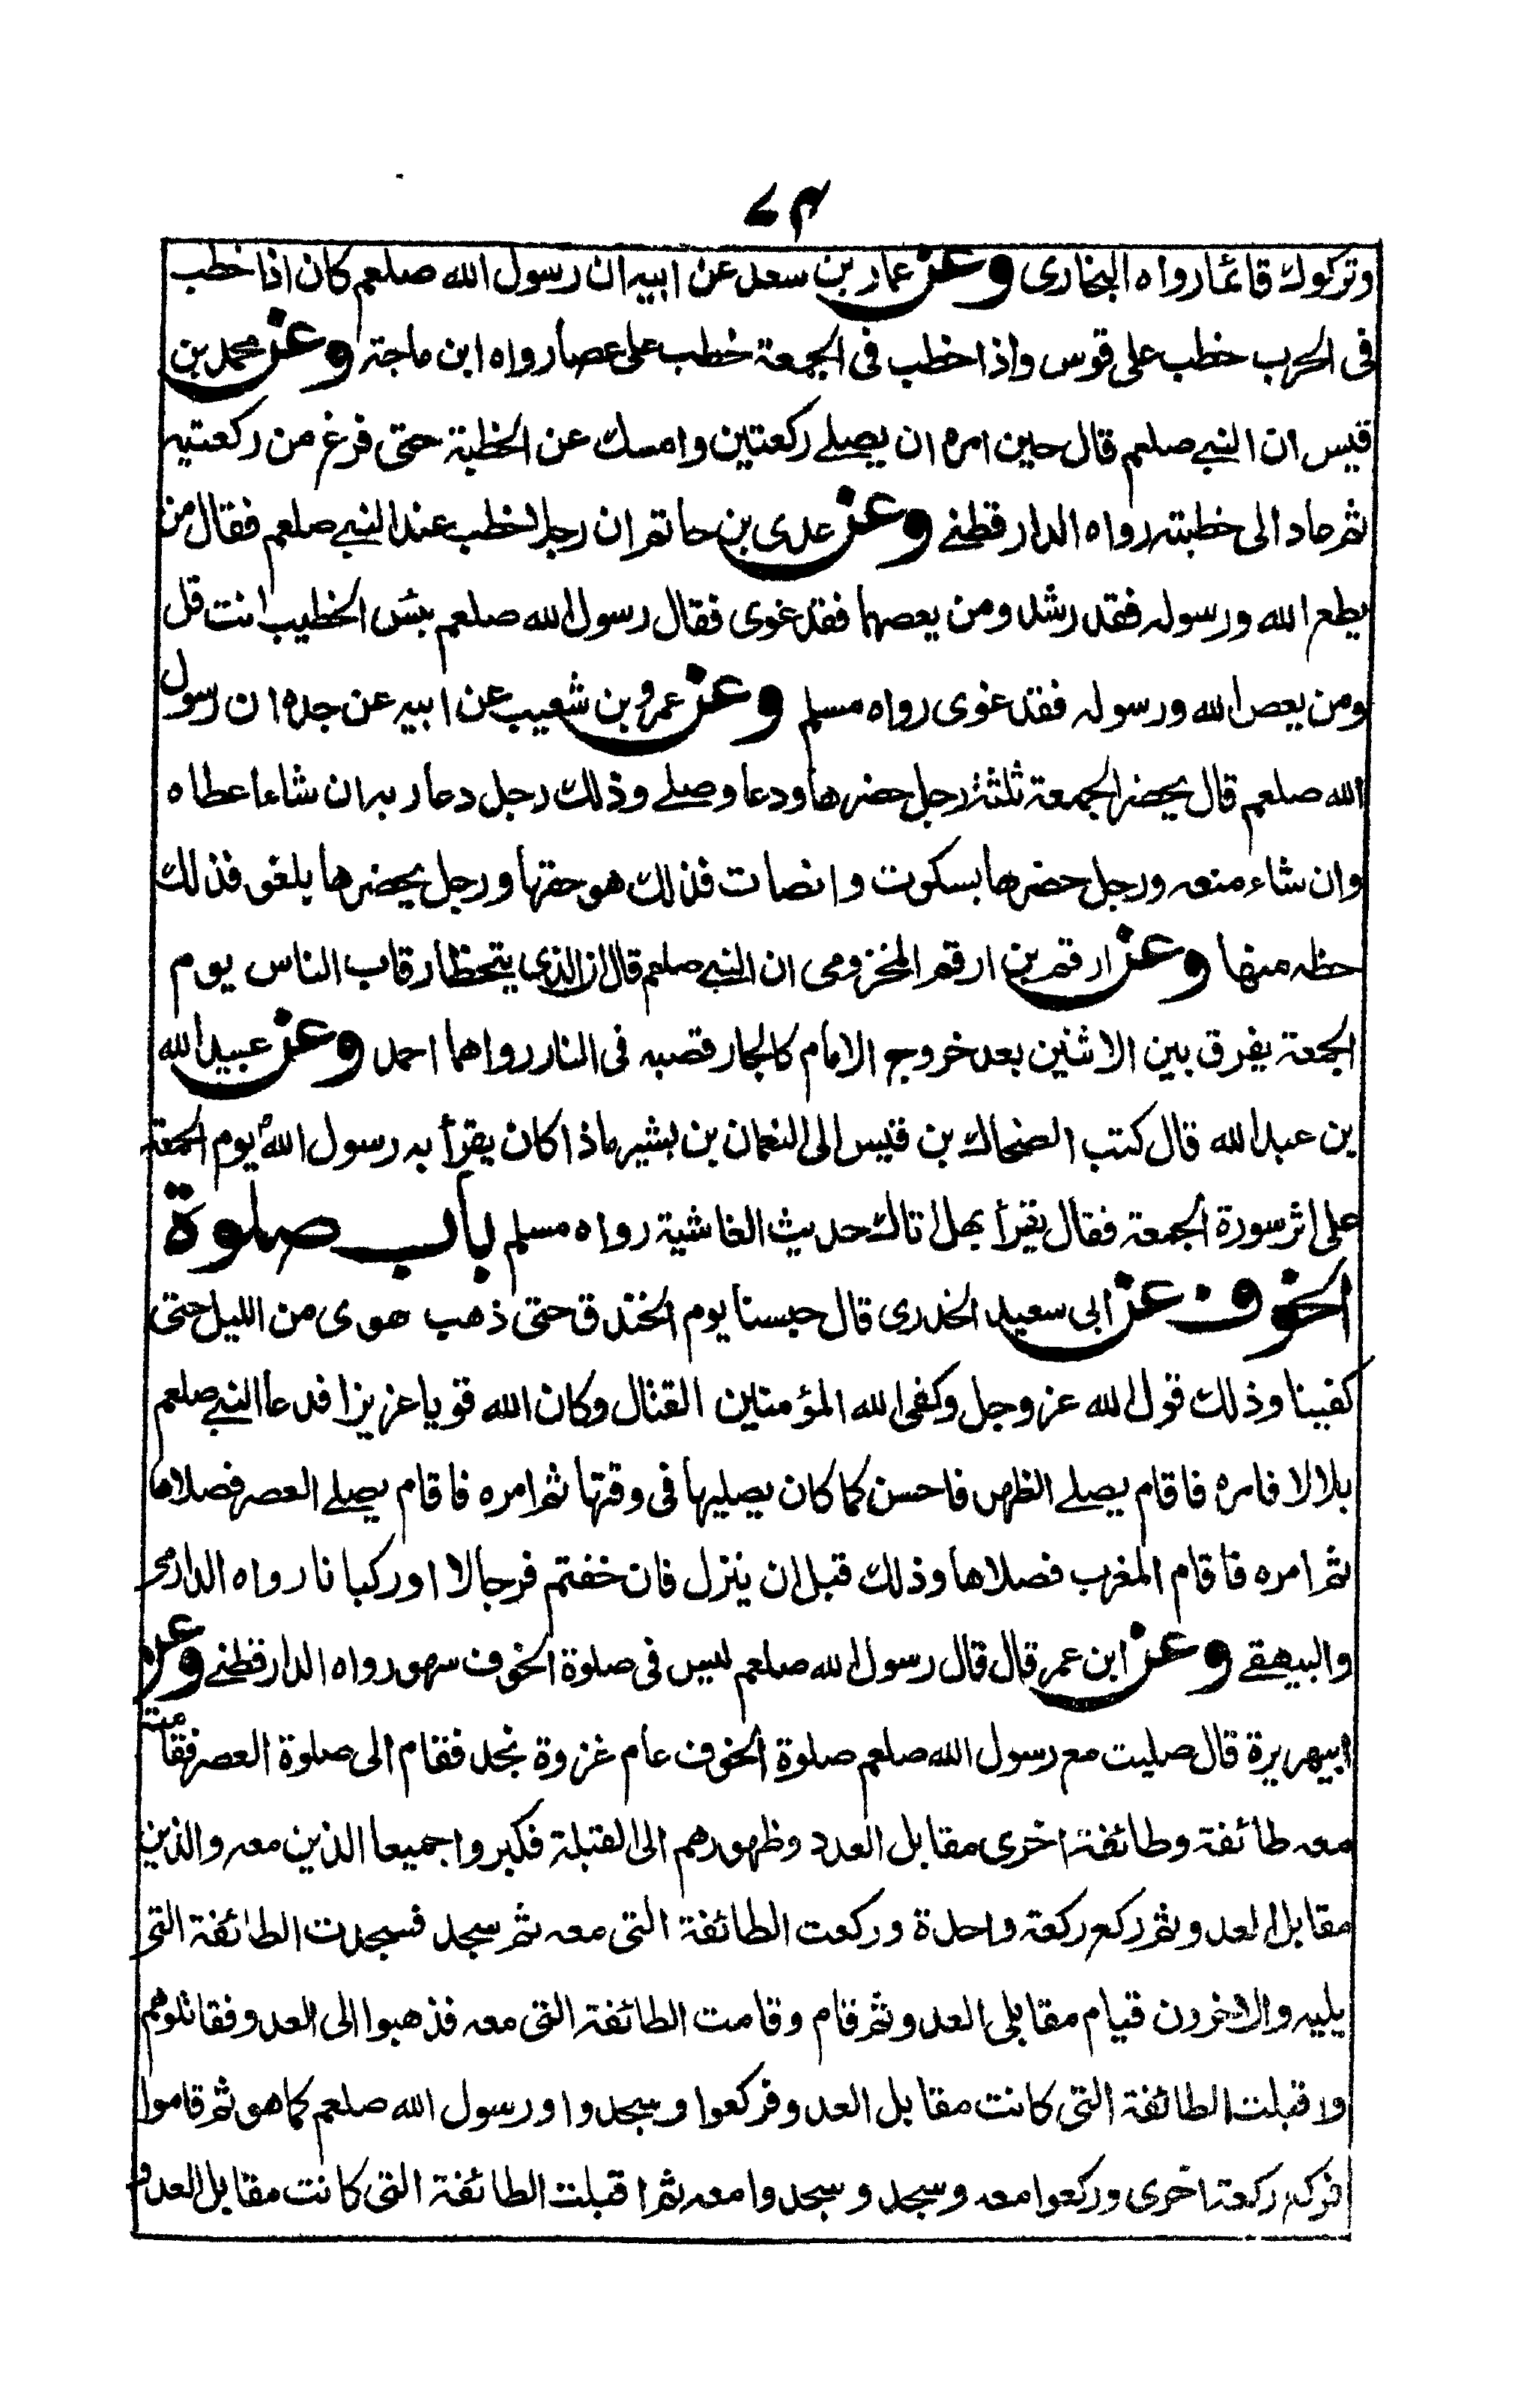 ٧٣
وتركوك قائما رواه البخارى وعن عمار بن سعد عن ابيه ان رسول الله صلعم كان اذا خطب
فى الحرب خطب على قوس واذا خطب فى الجمعة خطب على عصا رواه ابن ماجة وعن محمد بن
قيس ان النبے صلعم قال حين امره ان يصلے ركعتين وامسك عن الخطبة حتى فرغ من ركعتيه
ثم عاد الى خطبته رواه الدارقطنے وعن عدى بن حاتم ان رجلا خطب عند النبے صلعم فقال من
يطع الله ورسوله فقد رشد ومن يعصهما فقد غوى فقال رسول الله صلعم بئس الخطيب انت قل
ومن يعص الله ورسوله فقد غوى رواه مسلم وعن عمرو بن شعيب عن ابيه عن جده ان رسول
الله صلعم قال يحضر الجمعة ثلثة رجل حضرها ودعا وصلے وذلك رجل دعا ربه ان شاء اعطاه
وان شاء منعه ورجل حضرها بسكوت وانصات فذلك هو حقها ورجل يحضرها يلغو فذلك
حظه منها وعن ارقم بن ارقم المخزومى ان النبے صلعم قال ان الذى يتخطا رقاب الناس يوم
الجمعة يفرق بين الاثنين بعد خروج الامام كالجار قصبه فى النار رواهما احمد وعن عبيد الله
بن عبد الله قال كتب الضحاك بن قيس الى النعمان بن بشير ماذا كان يقرأ به رسول الله يوم الجمعة
على اثر سورة الجمعة فقال يقرأ بهل اتاك حديث الغاشية رواه مسلم باب صلوة
الخوف عن ابى سعيد الخدرى قال حبسنا يوم الخندق حتى ذهب هوى من الليل حتى
كفينا وذلك قول الله عز وجل وكفى الله المؤمنين القتال وكان الله قويا عزيزا فدعا النبے صلعم
بلالا فامره فاقام يصلے الظهر فاحسن كما كان يصليها فى وقتها ثم امره فاقام يصلے العصر فصلاها
ثم امره فاقام المغرب فصلاها وذلك قبل ان ينزل فان خفتم فرجالا او ركبانا رواه الدارمى
والبيهقے وعن ابن عمر قال قال رسول الله صلعم ليس فى صلوة الخوف سهو رواه الدارقطنے وعن
ابيهريرة قال صليت مع رسول الله صلعم صلوة الخوف عام غزوة نجد فقام الى صلوة العصر فقامت
معه طائفة وطائفة اخرى مقابل العدد وظهورهم الى القبلة فكبروا جميعا الذين معه والذين
مقابل العدو ثم ركع ركعة واحدة وركعت الطائفة التى معه ثم سجد فسجدت الطائفة التى
يليه والاخرون قيام مقابلى العدو ثم قام وقامت الطائفة التى معه فذهبوا الى العدو فقاتلوهم
ولاقبلت الطائفة التى كانت مقابل العدو فركعوا وسجدوا ورسول الله صلعم كما هو ثم قاموا
فركع ركعة اخرى وركعوا معه وسجد وسجدوا معه ثم اقبلت الطائفة التى كانت مقابل العدو